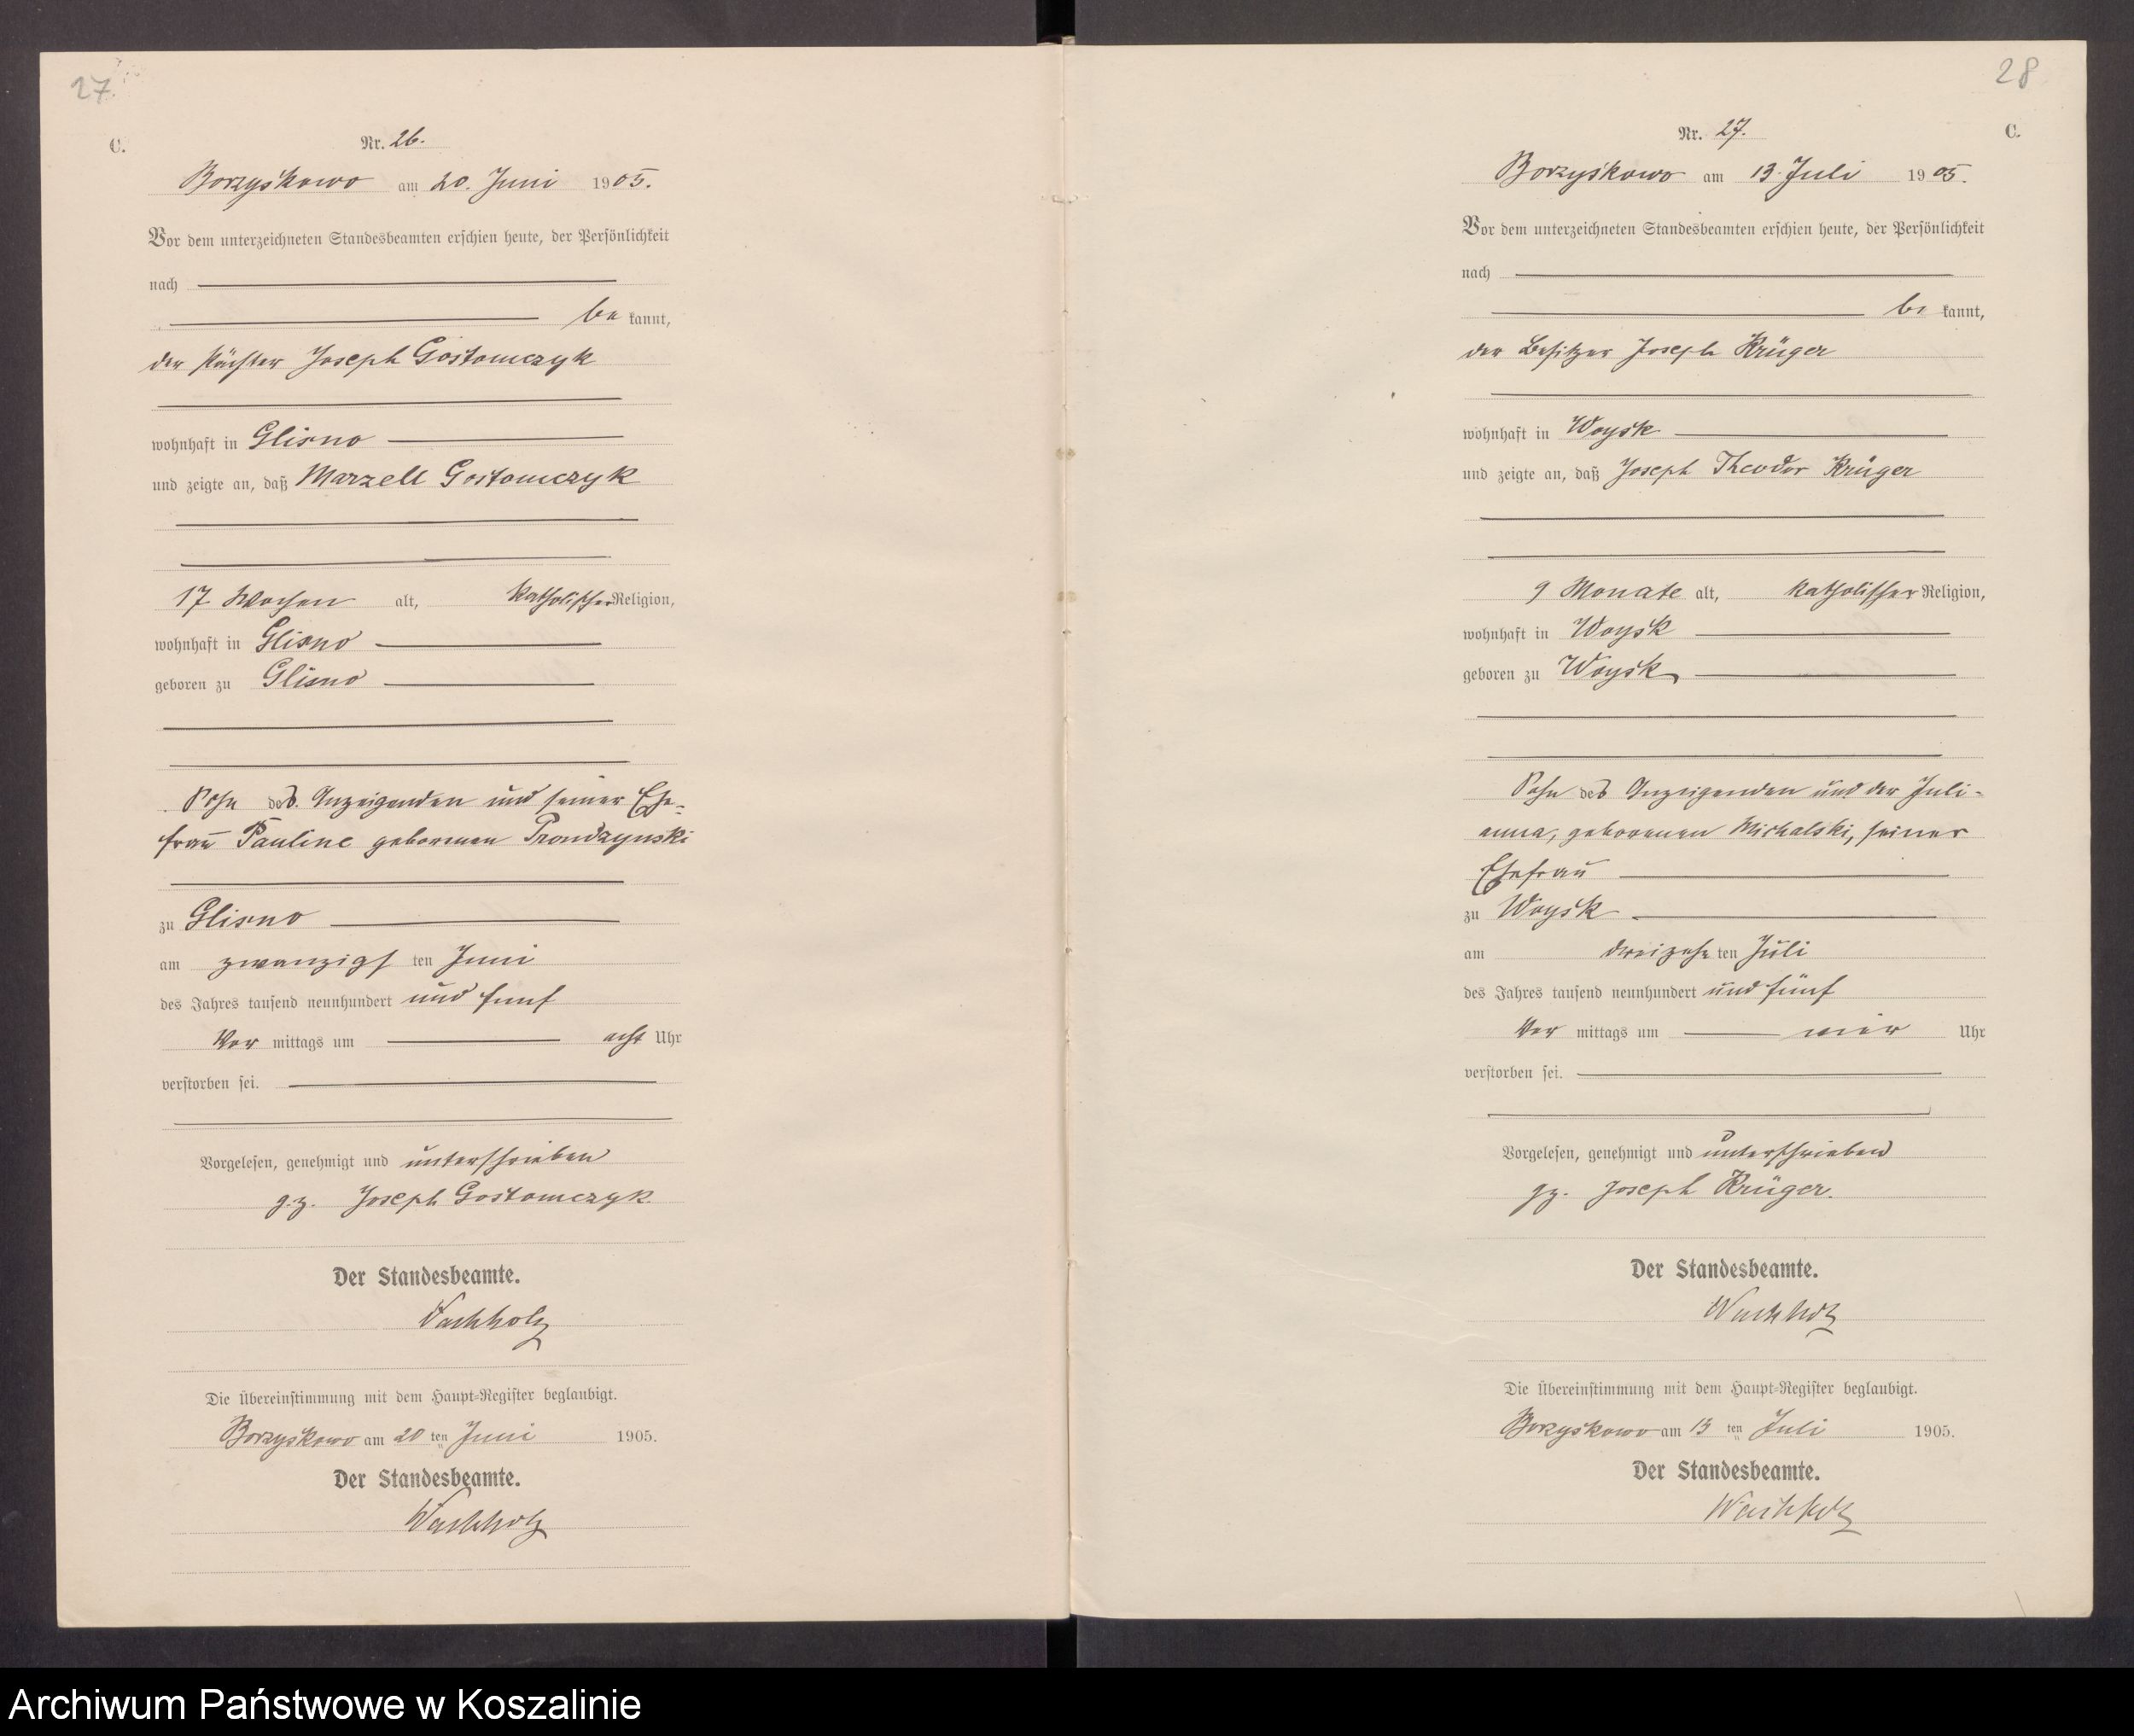 27
C.
Nr. 26.
Borzyskowo am 20. Juni 1905.
Vor dem unterzeichneten Standesbeamten erschien heute, der Persönlichkeit
nach
be kannt,
der Pächter Joseph Gostomczyk
wohnhaft in Glisno
und zeigte an, daß Marzell Gostomczyk
17 Wochen alt, katholischer Religion,
wohnhaft in Glisno
geboren zu Glisno
Sohn des Anzeigenden und seiner Ehe-
frau Pauline geborenen Prondzynski
zu Glisno
am zwanzigs ten Juni
des Jahres tausend neunhundert und fünf
Vor mittags um acht Uhr
verstorben sei.
Vorgelesen, genehmigt und unterschrieben
gz. Joseph Gostomczyk.
Der Standesbeamte.
Wachholz
Die Übereinstimmung mit dem Haupt-Register beglaubigt.
Borzyskowo am 20 ten Juni 1905.
Der Standesbeamte.
Wachholz
28
Nr. 27.
C.
Borzyskowo am 13 Juli 1905.
Vor dem unterzeichneten Standesbeamten erschien heute, der Persönlichkeit
nach
be kannt,
der Besitzer Joseph Krüger
wohnhaft in Woysk
und zeigte an, daß Joseph Theodor Krüger
9 Monate alt, katholischer Religion,
wohnhaft in Woysk
geboren zu Woysk
Sohn des Anzeigenden und der Juli-
anna, geborenen Michalski, seiner
Ehefrau
zu Woysk
am dreizehn ten Juli
des Jahres tausend neunhundert und fünf
Vor mittags um vier Uhr
verstorben sei.
Vorgelesen, genehmigt und unterschrieben
gz. Joseph Krüger.
Der Standesbeamte.
Wachholz
Die Übereinstimmung mit dem Haupt-Register beglaubigt.
Borzyskowo am 13 ten Juli 1905.
Der Standesbeamte.
Wachholz
Archiwum Państwowe w Koszalinie